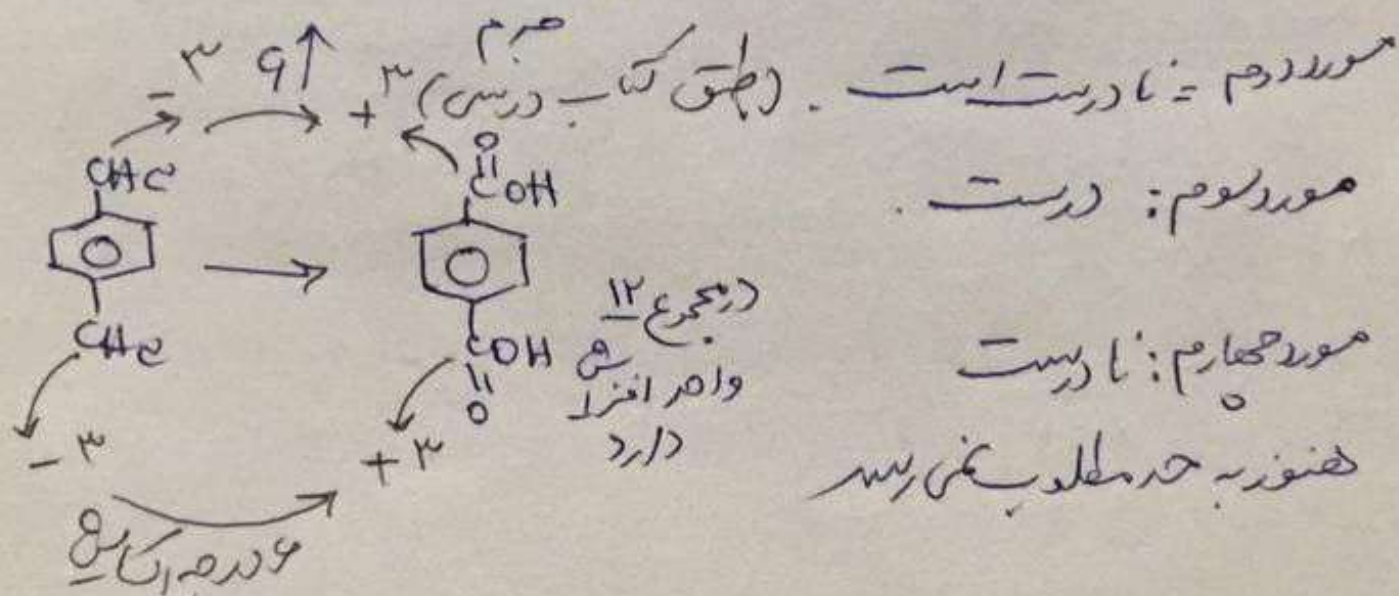 مورد دوم = نادرست است. (طبق کتاب درسی)
مورد سوم: درست.
مورد چهارم: نادرست
هنوز به حد مطلوب نمی رسد
-۳ ۶↑ +۳
CH۳
CH۳
-۳
O
C OH
C OH
O
+۳
در مجموع ۱۲
واحد افزایش
دارد
۶ درجه اکسایش